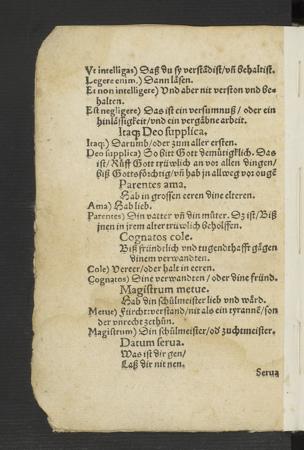 Vt intelligas) Daß du sy verstãdist/vñ behaltist.
Legere enim.) Dann läsen.
Et non intelligere) Vnd aber nit verston vnd be-
halten.
Est negligere) Das ist ein versumnuß/ oder ein
hinlässigkeit/vnd ein vergäbne arbeit.
Itaqꝫ Deo supplica.
Itaqꝫ) Darumb/oder zum aller ersten.
Deo supplica) So bitt Gott demütigklich. Das
ist/Rüff Gott trüwlich an vor allen dingen/
biß Gottsförchtig/vñ hab jn allweg vor ougẽ
Parentes ama.
Hab in grossen eeren dine elteren.
Ama) Hab lieb.
Parentes) Din vatter vñ din můter. Dz ist/Biß
jnen in jrem alter trüwlich beholffen.
Cognatos cole.
Biß fründtlich vnd tugendthafft gägen
dinem verwandten.
Cole) Vereer/oder halt in eeren.
Cognatos) Dine verwandten/ oder dine fründ.
Magistrum metue.
Hab din schůlmeister lieb vnd wärd.
Metue) Fürcht:verstand/nit als ein tyrannẽ/son
der vnrecht zethůn.
Magistrum) Din schůlmeister/oď zuchtmeister.
Datum serua.
Was ist dir gen/
Laß dir nit nen.
Serua